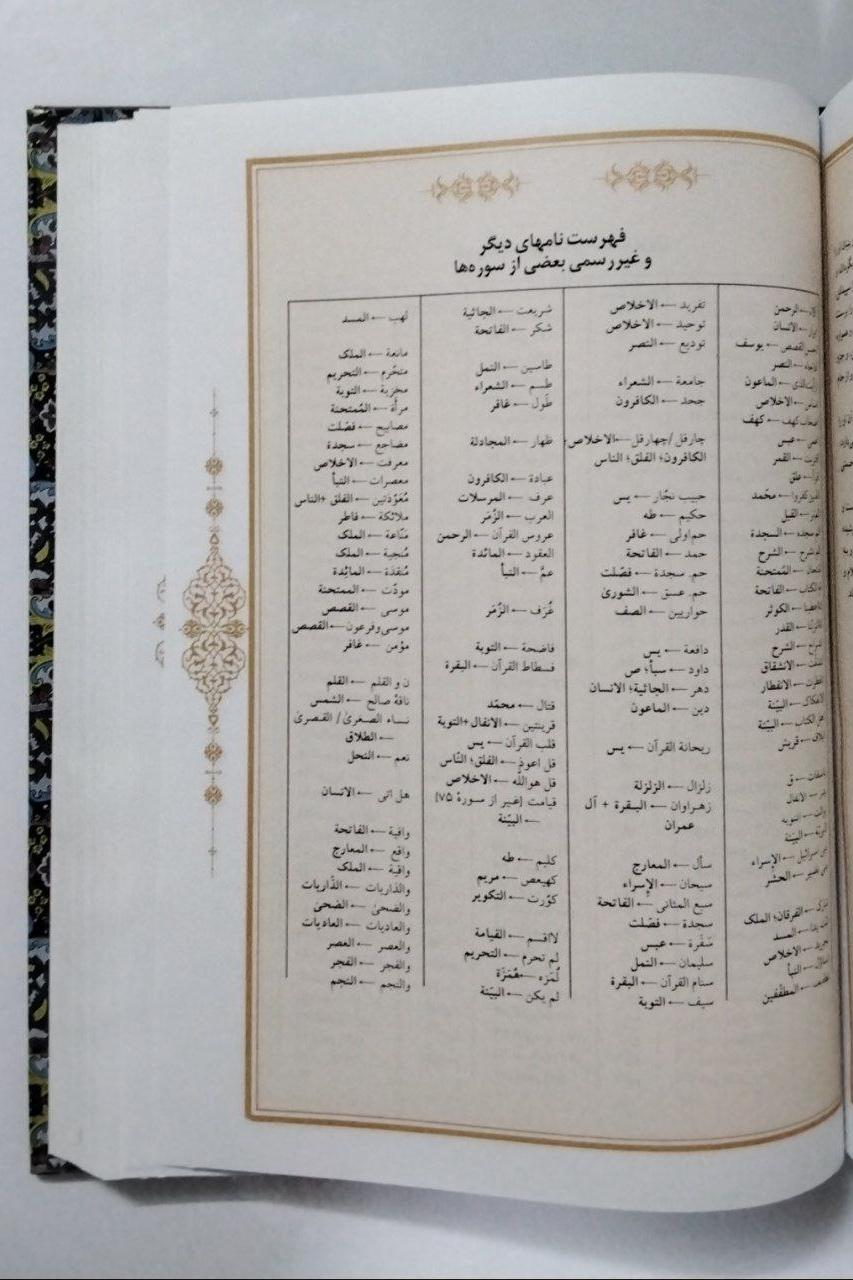 فهرست نامهای دیگر
و غیررسمی بعضی از سوره‌ها
← الرحمن
← الانسان
القصص ← یوسف
← النصر
← الماعون
← الاخلاص
اصحاب کهف ← کهف
← عبس
← القمر
← علق
کفروا ← محمّد
← الفیل
← السجدة
← الشرح
← المُمتحنة
الکتاب ← الفاتحة
← الکوثر
← القدر
← الشرح
← الانشقاق
← الانفطار
← البیّنة
الکتاب ← البیّنة
← قریش
← ق
← الانفال
← التوبه
← البیّنة
← الإسراء
← الحشر
← الفرقان؛ الملک
← المسد
← الاخلاص
← النبأ
← المطفّفین
تفرید ← الاخلاص
توحید ← الاخلاص
تودیع ← النصر
جامعة ← الشعراء
جحد ← الکافرون
چارقل / چهارقل ← الاخلاص؛
الکافرون؛ الفلق؛ الناس
حبیب نجّار ← یس
حکیم ← طه
حم‌اولی ← غافر
حمد ← الفاتحة
حم. سجدة ← فصّلت
حم. عسق ← الشوریٰ
حواریین ← الصف
دافعة ← یس
داود ← سبأ؛ ص
دهر ← الجاثیة؛ الانسان
دین ← الماعون
ریحانة القرآن ← یس
زلزال ← الزلزلة
زهراوان ← البقرة + آل
عمران
سأل ← المعارج
سبحان ← الإسراء
سبع المثانی ← الفاتحة
سجدة ← فصّلت
سَفَرة ← عبس
سلیمان ← النمل
سنام القرآن ← البقرة
سیف ← التوبة
شریعت ← الجاثیة
شکر ← الفاتحة
طاسین ← النمل
طسم ← الشعراء
طَول ← غافر
ظهار ← المجادلة
عبادة ← الکافرون
عرف ← المرسلات
العرب ← الزُمَر
عروس القرآن ← الرحمن
العقود ← المائدة
عمَّ ← النبأ
غُرَف ← الزُمَر
فاضحة ← التوبة
فسطاط القرآن ← البقرة
قتال ← محمّد
قرینتین ← الانفال+التوبة
قلب القرآن ← یس
قل اعوذ ← الفلق؛ النّاس
قل هواللّه ← الاخلاص
قیامت [غیر از سورهٔ ۷۵]
← البیّنة
کلیم ← طه
کهیعص ← مریم
کوّرت ← التکویر
لااقسم ← القیامة
لم تحرم ← التحریم
لُمَزه ← هُمَزَة
لم یکن ← البیّنة
لهب ← المسد
مانعة ← الملک
متحّرم ← التحریم
مخزیة ← التوبة
مرأة ← المُمتحنة
مصابیح ← فصّلت
مضاجع ← سجدة
معرفت ← الاخلاص
معصرات ← النبأ
مُعَوّذتین ← الفلق +الناس
ملائکة ← فاطر
منّاعة ← الملک
مُنجیة ← الملک
مُنقذة ← المائِدة
مودّت ← الممتحنة
موسی ← القصص
موسی‌وفرعون ← القصص
مؤمن ← غافر
ن و القلم ← القلم
ناقهٔ صالح ← الشمس
نساء الصغریٰ / القصریٰ
← الطلاق
نعم ← النحل
هل اتی ← الانسان
واقیة ← الفاتحة
واقع ← المعارج
واقیة ← الملک
والذاریات ← الذّاریات
والضحیٰ ← الضحیٰ
والعادیات ← العادیات
والعصر ← العصر
والفجر ← الفجر
والنجم ← النجم